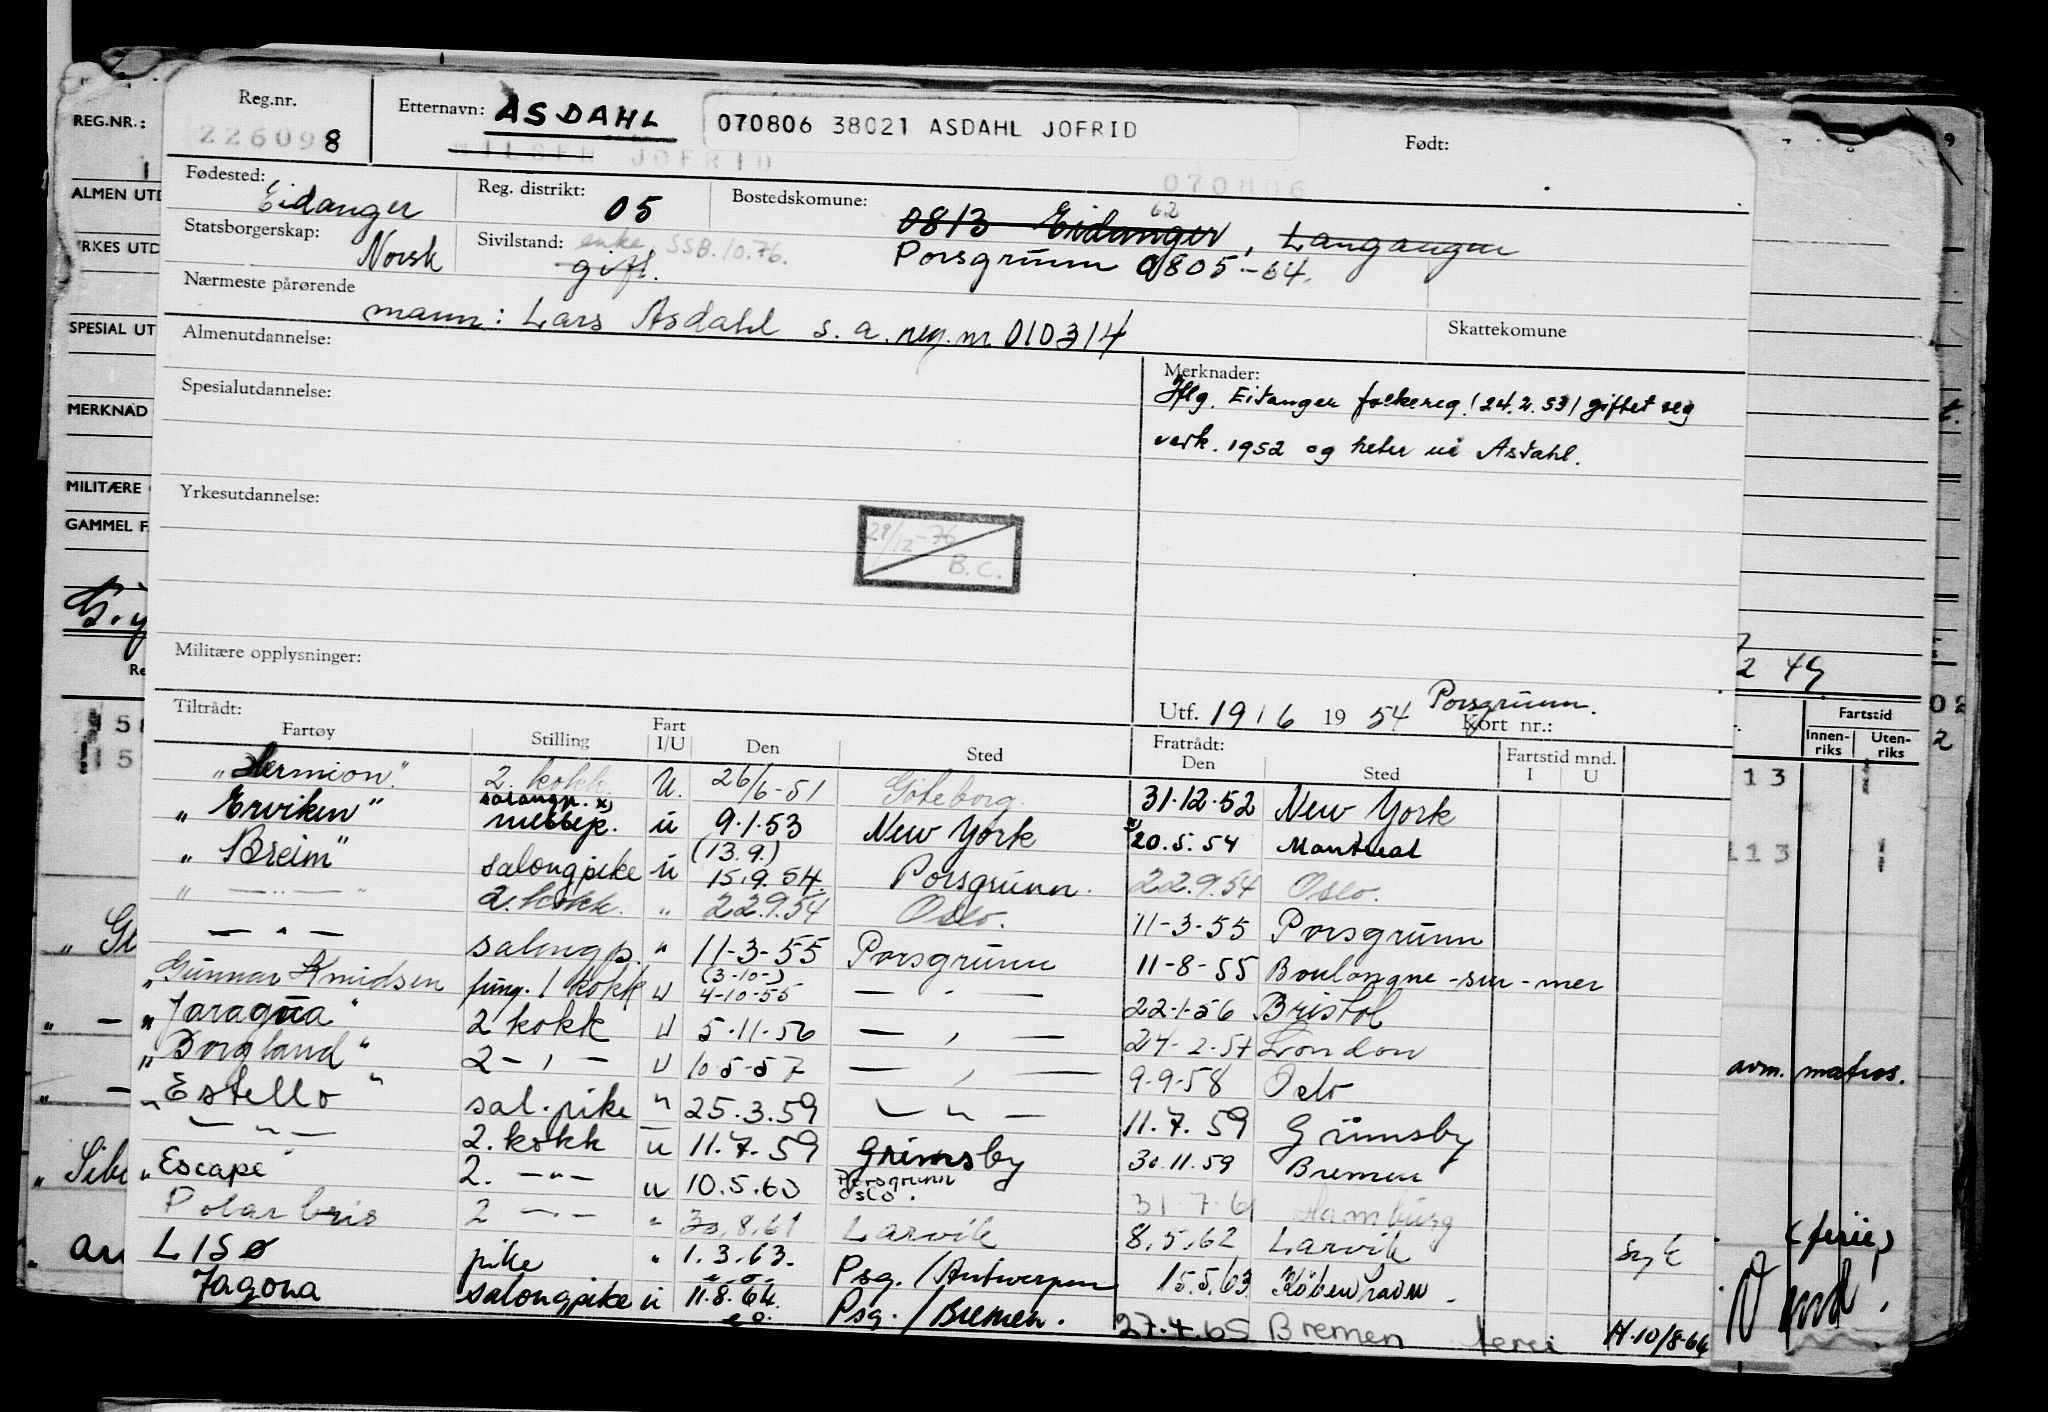 Reg.nr.
226098
Etternavn: ASDAHL
070806 38021 ASDAHL JOFRID
Født:
NILSEN JOFRID
070806
Fødested: Eidanger
Reg. distrikt: 05
Bostedskomune: 0813 Eidanger, Langangen
62
Porsgrunn 0805-64.
Statsborgerskap: Norsk
Sivilstand: enke SSB.10.76.
gift.
Nærmeste pårørende
mann: Lars Asdahl s.a. reg. nr 010314
Skattekomune
Almenutdannelse:
Spesialutdannelse:
Merknader:
Iflg. Eidanger folkereg. (24.2.53) giftet seg
verk. 1952 og heter nå Asdahl.
Yrkesutdannelse:
29/12-76
B.C.
Militære opplysninger:
Utf. 19/6 1954 Porsgrunn. Kort nr.:
Tiltrådt:
Fratrådt:
Fartøy Stilling Fart I/U Den Sted Den Sted Fartstid mnd. I U
"Hermion" 2. kokk U. 26/6-51 Göteborg. 31.12.52 New York
"Erviken" salongp. x) messep. u 9.1.53 New York x) 20.5.54 Montreal
"Breim" salongpike u (13.9.) 15.9.54. Porsgrunn. 22.9.54 Oslo.
" — " — " 2. kokk. " 22.9.54 Oslo. 11-3-55 Porsgrunn
— " — salongp. " 11-3-55 Porsgrunn 11-8-55 Boulongne-sur-mer
"Gunnar Knudsen fung. 1 kokk u (3-10-) 4-10-55 — " — 22-1-56 Bristol
"Jaragua" 2 kokk u 5-11-56 — " — 24-2-57 London
"Borgland" 2 — " — u 10-5-57 — " — 9-9-58 Oslo
"Estello" sal. pike " 25.3.59 — " — 11.7.59 Grimsby
— " — 2. kokk u 11.7.59 Grimsby 30.11.59 Bremen
"Escape" 2. — " — u 10.5.60 Porsgrunn Oslo. 31.7.61 Hamburg
Polarbris 2 — " — " 30.8.61 Larvik 8.5.62 Larvik syk
LISØ pike " 1.3.63. Psg. / Antwerpen 15.5.63 København
Jagona salongpike u 11.8.64. Psg. / Bremen. 27.4.65 Bremen ferei H.10/8-64
REG.NR.:
ALMEN UTD
YRKES UTD
SPESIAL UT
MERKNAD
MILITÆRE
GAMMEL F
2 49
Fartstid
Innen-riks
Uten-riks
02
2
13
113
avm. matros.
(ferie)